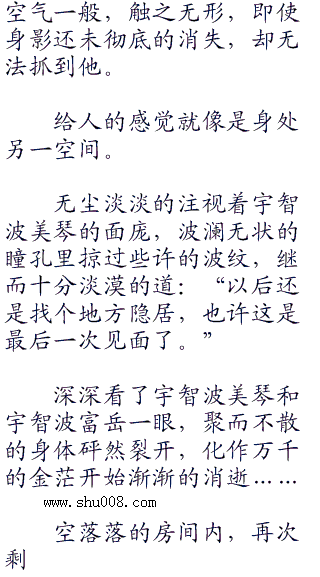 空气一般，触之无形，即使
身影还未彻底的消失，却无
法抓到他。
给人的感觉就像是身处
另一空间。
无尘淡淡的注视着宇智
波美琴的面庞，波澜无状的
瞳孔里掠过些许的波纹，继
而十分淡漠的道：“以后还
是找个地方隐居，也许这是
最后一次见面了。”
深深看了宇智波美琴和
宇智波富岳一眼，聚而不散
的身体砰然裂开，化作万千
的金茫开始渐渐的消逝……
www.shu008.com
空落落的房间内，再次
剩